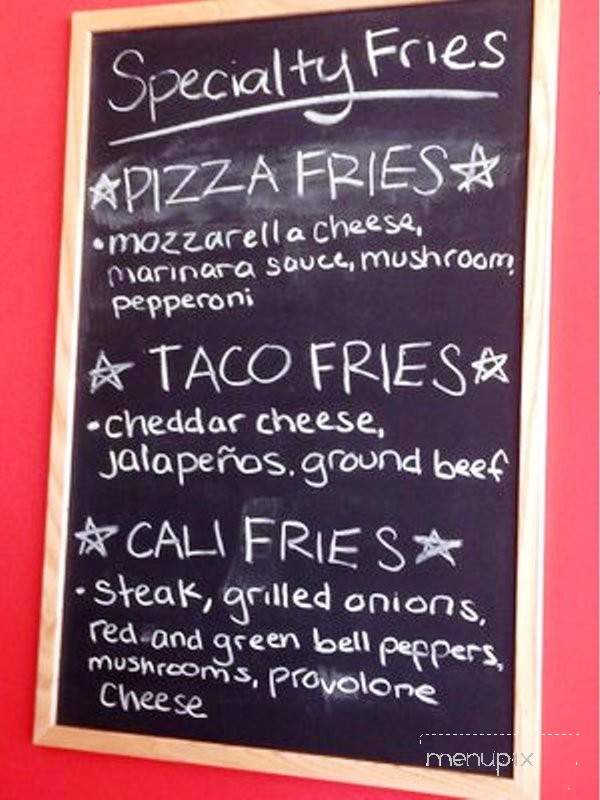 Specialty Fries
☆PIZZA FRIES☆
•mozzarella cheese,
marinara sauce, mushroom,
pepperoni
☆ TACO FRIES☆
•cheddar cheese,
jalapeños. ground beef
☆ CALI FRIES☆
•steak, grilled onions,
red and green bell peppers,
mushrooms, provolone
Cheese
menupix